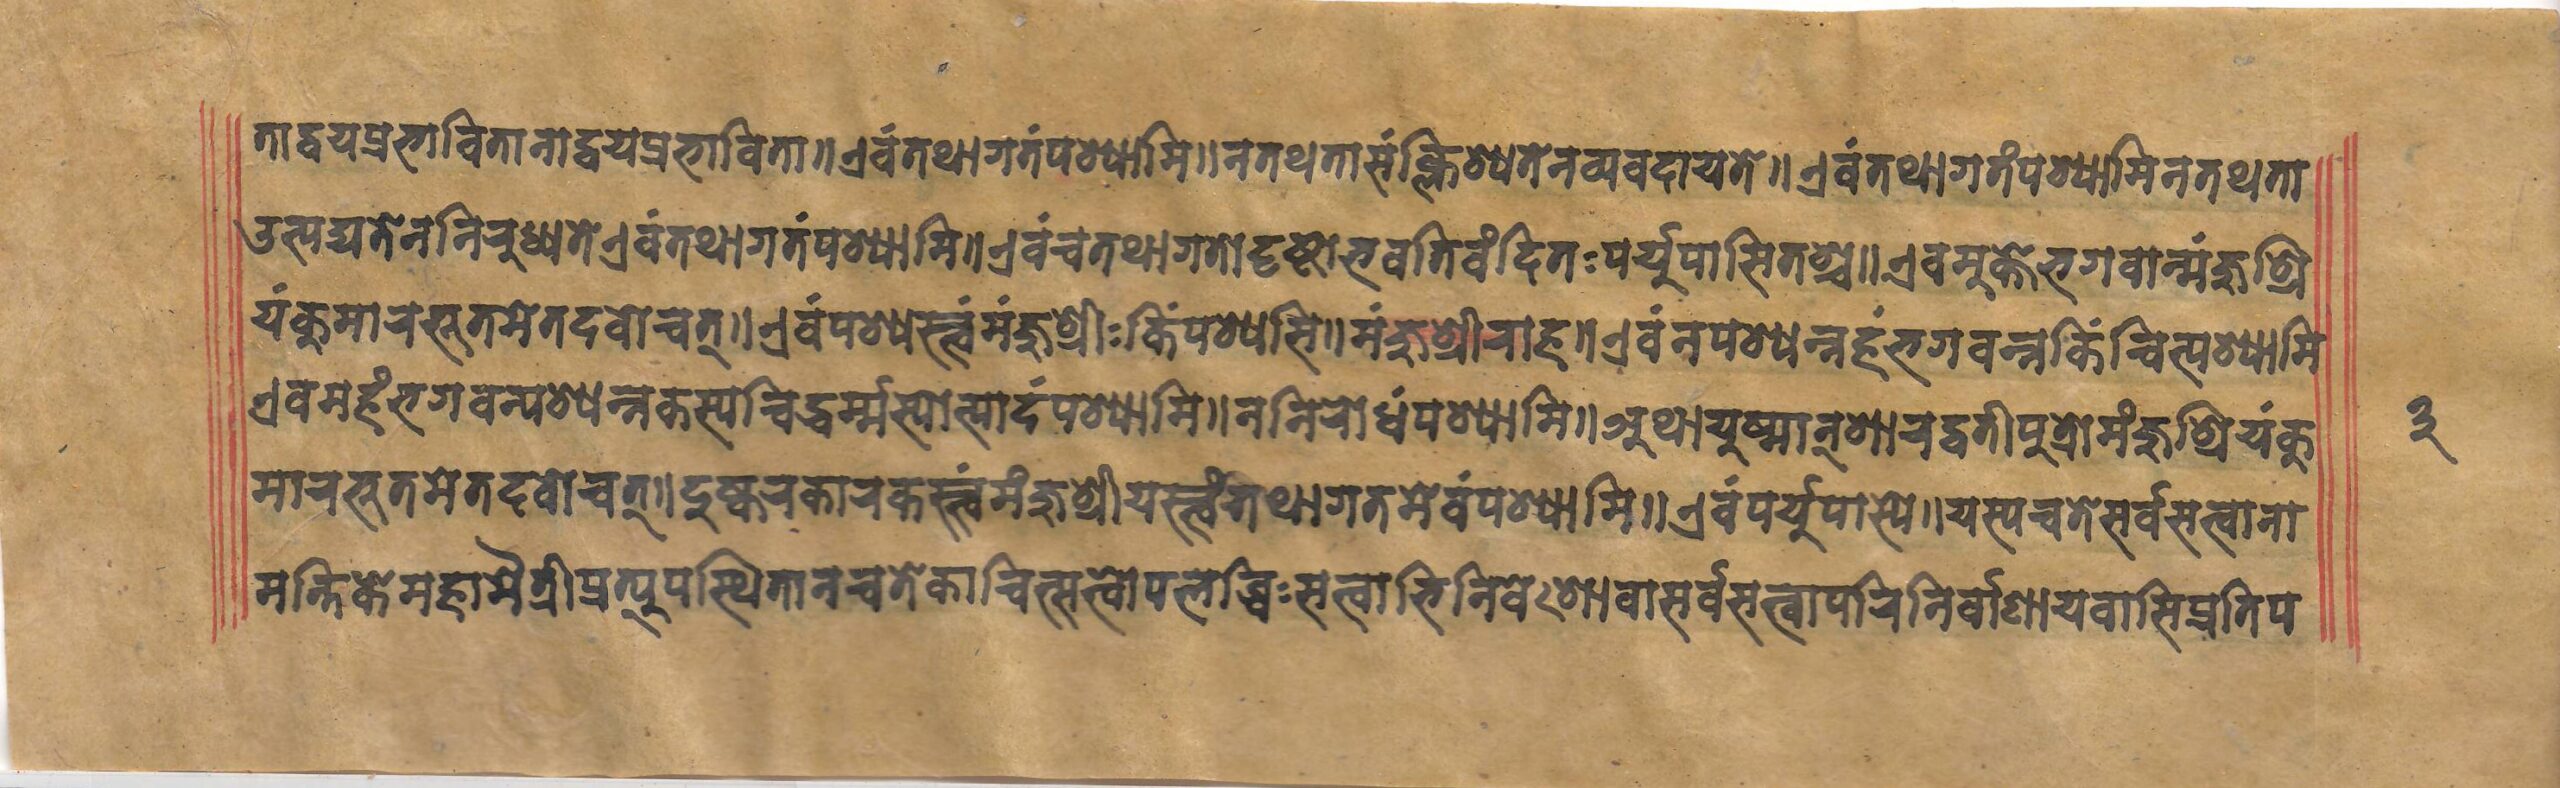 ताद्वयप्रभावितानाद्वयप्रभाविता॥एवंतथागतंपश्यामि॥नतथतासंक्लिश्यतेनव्यवदायते॥एवंतथागतंपश्यामिनतथता
उत्पद्यतेननिरुध्यतेएवंतथागतंपश्यामि॥एवंचतथागतोदृष्टोभवतिवंदितःपर्युपासितश्च॥एवमुक्तेभगवान्मंजुश्रि
यंकुमारभूतमेतदवोचत्॥एवंपश्यस्त्वंमंजुश्रीःकिंपश्यसि॥मंजुश्रीराह॥एवंनपश्यन्नहंभगवन्नकिंन्चित्पश्यामि
एवमहंभगवन्पश्यन्नकस्यन्चिद्धर्म्मस्योत्पादंपश्यामि॥ननिरोधंपश्यामि॥अथायुष्मान्शारद्वतीपुत्रोमंजुश्रियंकु
३
मारभूतमेतदवोचत्॥दुष्करकारकस्त्वंमंजुश्रीयस्त्वंतथागतमेवंपश्यामि॥एवंपर्युपास्ये॥यस्यचतेसर्वसत्वाना
मन्तिकेमहामैत्रीप्रत्पुपस्थितानचतेकाचित्सत्वोपलब्धिःसत्वाभिनिवेशोवासर्वसत्वापरिनिर्वाणायवासिप्रतिप